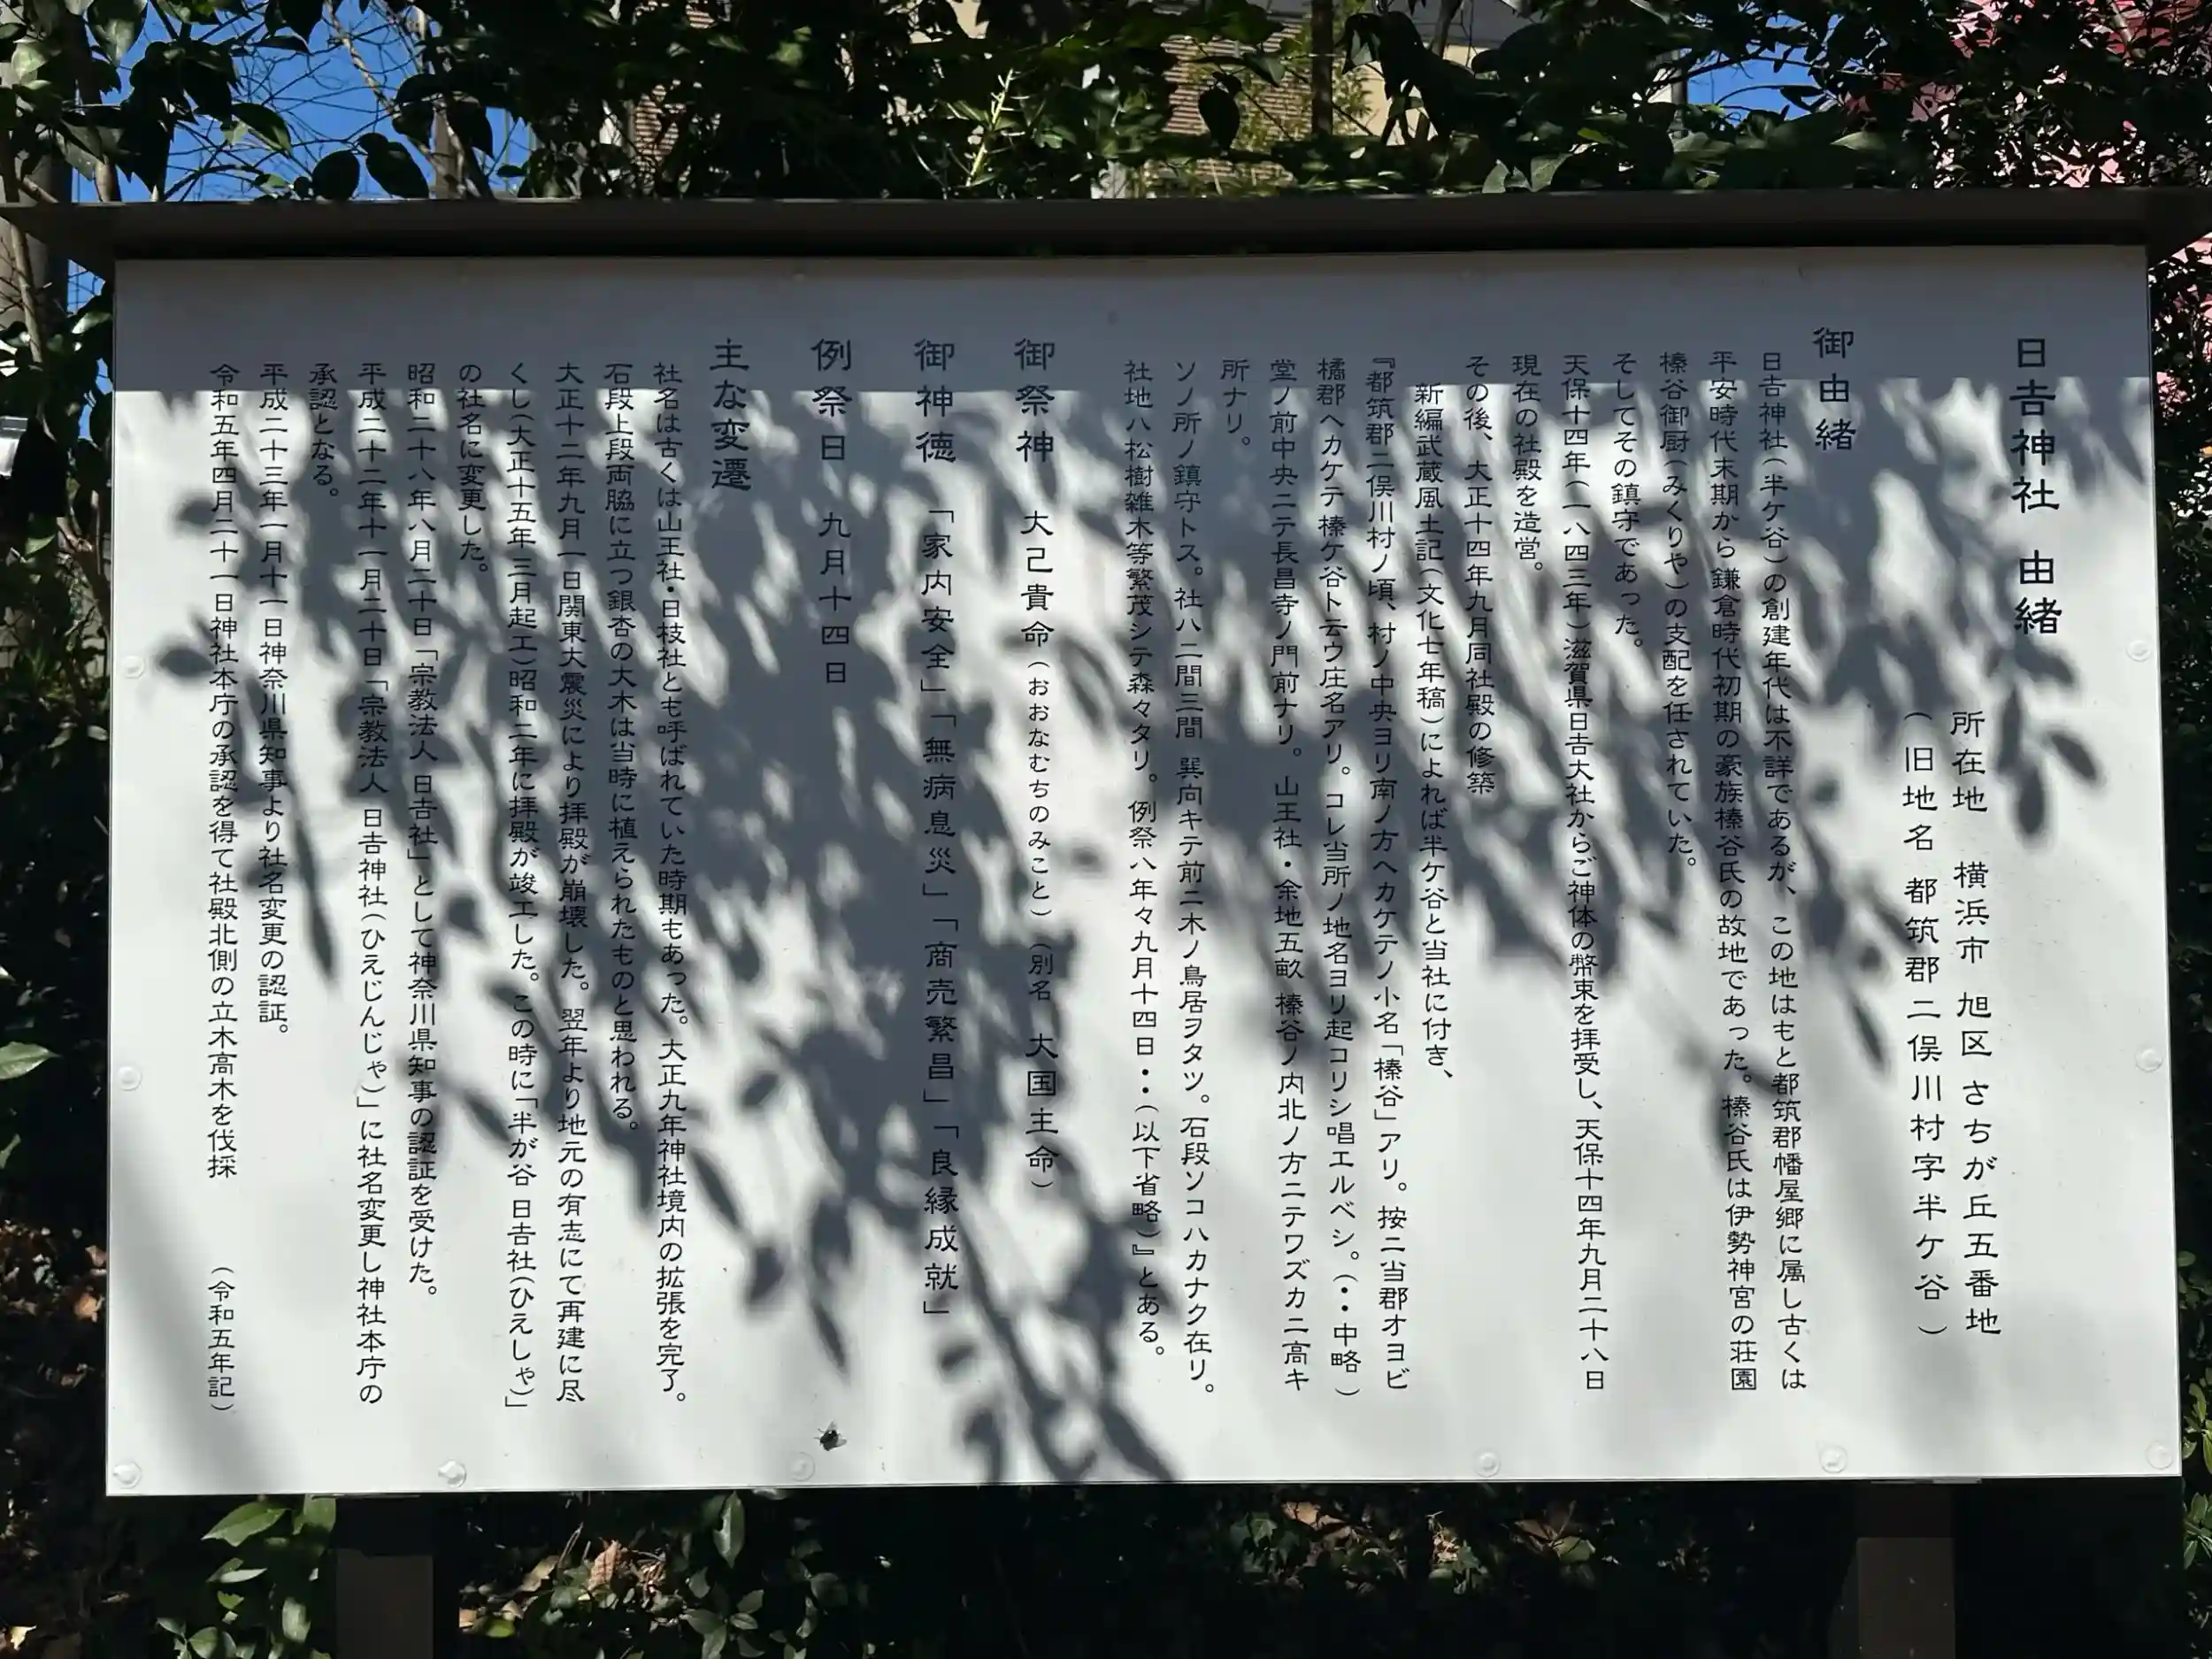 日吉神社 由緒
所在地 横浜市 旭区 さちが丘五番地
(旧地名 都筑郡二俣川村字半ケ谷)
御由緒
日吉神社(半ケ谷)の創建年代は不詳であるが、この地はもと都筑郡幡屋郷に属し古くは
平安時代末期から鎌倉時代初期の豪族榛谷氏の故地であった。榛谷氏は伊勢神宮の荘園
榛谷御厨(みくりや)の支配を任されていた。
そしてその鎮守であった。
天保十四年(一八四三年)滋賀県日吉大社からご神体の幣束を拝受し、天保十四年九月二十八日
現在の社殿を造営。
その後、大正十四年九月同社殿の修築
新編武蔵風土記(文化七年稿)によれば半ケ谷と当社に付き、
『都筑郡二俣川村ノ頃、村ノ中央ヨリ南ノ方ヘカケテノ小名「榛谷」アリ。按ニ当郡オヨビ
橘郡ヘカケテ榛ケ谷ト云ウ庄名アリ。コレ当所ノ地名ヨリ起コリシ唱エルベシ。(・・中略)
堂ノ前中央ニテ長昌寺ノ門前ナリ。山王社・余地五畝 榛谷ノ内北ノ方ニテワズカニ高キ
所ナリ。
ソノ所ノ鎮守トス。社ハ二間三間 巽向キテ前ニ木ノ鳥居ヲタツ。石段ソコハカナク在リ。
社地ハ松樹雑木等繁茂シテ森々タリ。例祭ハ年々九月十四日・・(以下省略)』とある。
御祭神 大己貴命(おおなむちのみこと)(別名 大国主命)
御神徳 「家内安全」「無病息災」「商売繁昌」「良縁成就」
例祭日 九月十四日
主な変遷
社名は古くは山王社・日枝社とも呼ばれていた時期もあった。大正九年神社境内の拡張を完了。
石段上段両脇に立つ銀杏の大木は当時に植えられたものと思われる。
大正十二年九月一日関東大震災により拝殿が崩壊した。翌年より地元の有志にて再建に尽
くし(大正十五年三月起工)昭和二年に拝殿が竣工した。この時に「半が谷 日吉社(ひえしゃ)」
の社名に変更した。
昭和二十八年八月二十日「宗教法人 日吉社」として神奈川県知事の認証を受けた。
平成二十二年十一月二十日「宗教法人 日吉神社(ひえじんじゃ)」に社名変更し神社本庁の
承認となる。
平成二十三年一月十一日神奈川県知事より社名変更の認証。
令和五年四月二十一日神社本庁の承認を得て社殿北側の立木高木を伐採 (令和五年記)